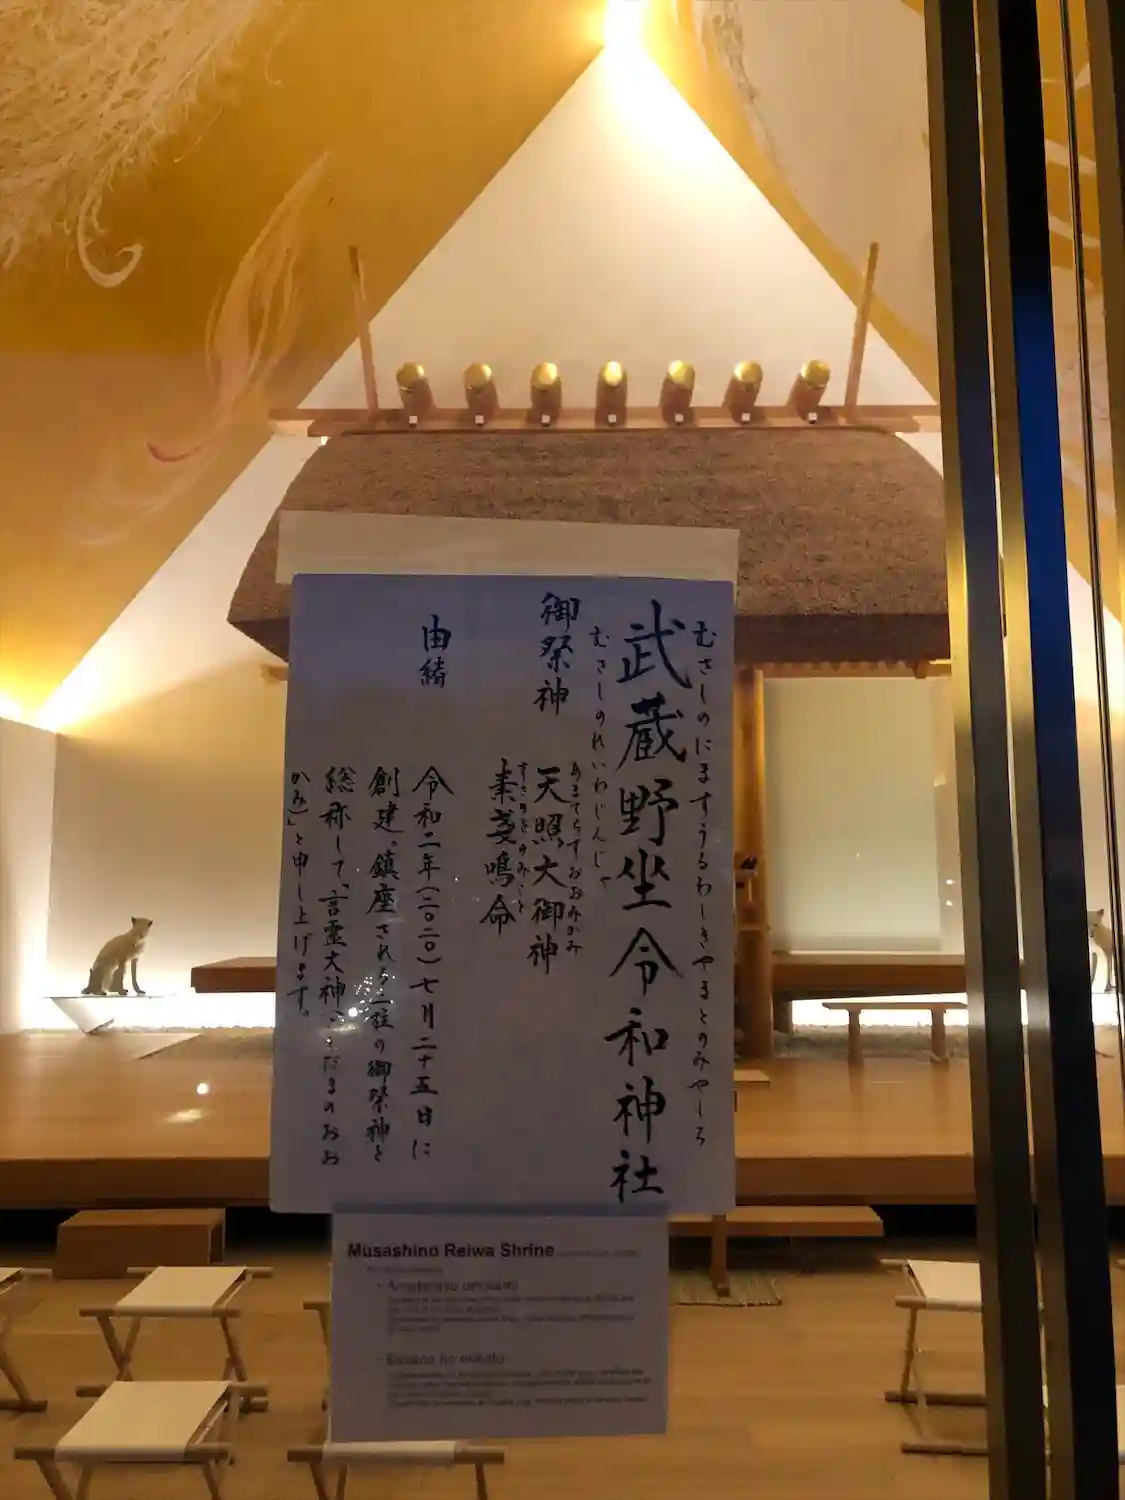 むさしのにますうるわしきやまとのみやしろ
武蔵野坐令和神社
むさしのれいわじんじゃ
御祭神
あまてらすおおみかみ
天照大御神
すさのをのみこと
素戔嗚命
由緒
令和二年(二〇二〇)七月二十五日に
創建。鎮座される二柱の御祭神を
総称して、「言霊大神(ことだまのおお
かみ)」と申し上げます。
Musashino Reiwa Shrine
・Amaterasu omikami
・Susano no mikoto